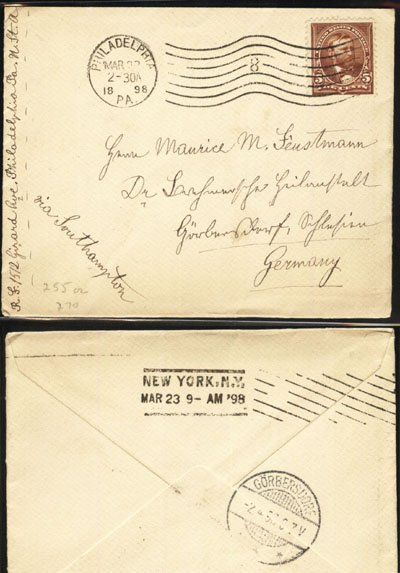 R. S. 1512 Girard Ave. Philadelphia Pa. N. St. A.
PHILADELPHIA
MAR 22
2-30A
18 98
PA.
8
5 5
Herrn Maurice M. Feustmann
Dr Brehmersche Heilanstalt
Görbersdorf, Schlesien
Germany
via Southampton
255 on
270
NEW YORK, N.Y.
MAR 23 9-AM '98
GÖRBERSDORF